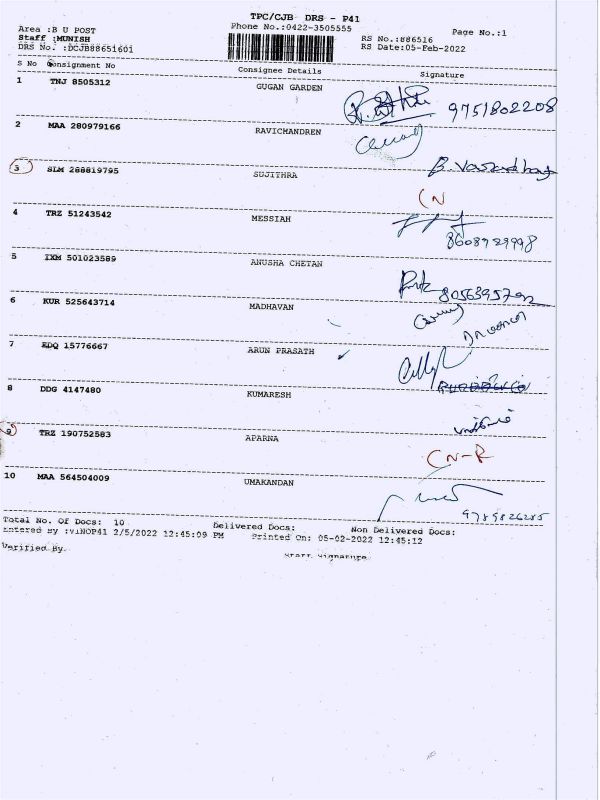 TPC/CJB DRS - P41
Area :B U POST Phone No.:0422-3505555 Page No.:1
Staff :MUNISH RS No.:886516
DRS No. :DCJB88651601 RS Date:05-Feb-2022
S No Consignment No Consignee Details Signature
1 TNJ 8505312 GUGAN GARDEN 9751802208
2 MAA 280979166 RAVICHANDREN
3 SLM 288819795 SUJITHRA
CN
4 TRZ 51243542 MESSIAH
8608929998
5 IXM 501023589 ANUSHA CHETAN
6 KUR 525643714 MADHAVAN
7 EDQ 15776667 ARUN PRASATH
8 DDG 4147480 KUMARESH
9 TRZ 190752583 APARNA CN-R
10 MAA 564504009 UMAKANDAN
Total No. Of Docs: 10 Delivered Docs: Non Delivered Docs:
Entered By :VINOP41 2/5/2022 12:45:09 PM Printed On: 05-02-2022 12:45:12
Verified By. Staff Signature